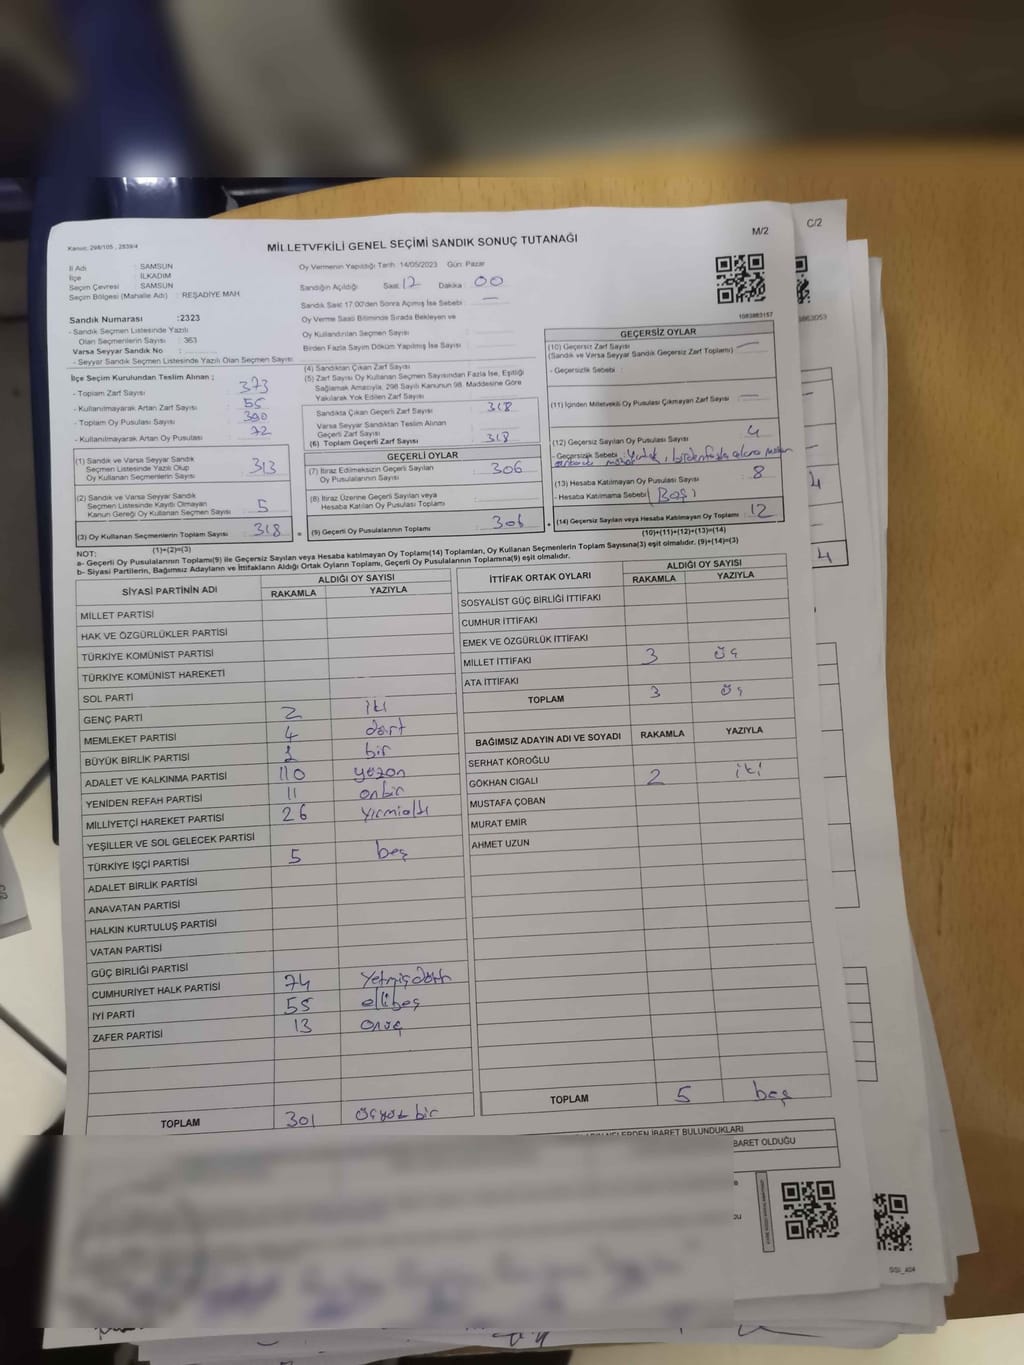 C/2
M/2
Kanuc: 298/105 , 2839/4
MİLLETVEKİLİ GENEL SEÇİMİ SANDIK SONUÇ TUTANAĞI
İl Adı : SAMSUN
İlçe : İLKADIM
Seçim Çevresi : SAMSUN
Seçim Bölgesi (Mahalle Adı) : REŞADİYE MAH
Oy Vermenin Yapıldığı Tarih :14/05/2023 Gün: Pazar
Sandığın Açıldığı Saat 12 Dakika : 00
Sandık Saat 17:00'den Sonra Açımış İse Sebebi : —
Oy Verme Saati Bitiminde Sırada Bekleyen ve
Oy Kullandırılan Seçmen Sayısı
Birden Fazla Sayım Döküm Yapılmış İse Sayısı :
1083883157
863053
Sandık Numarası :2323
- Sandık Seçmen Listesinde Yazılı
Olan Seçmenlerin Sayısı : 363
Varsa Seyyar Sandık No :
- Seyyar Sandık Seçmen Listesinde Yazılı Olan Seçmen Sayısı
İlçe Seçim Kurulundan Teslim Alınan ;
- Toplam Zarf Sayısı : 373
- Kullanılmayarak Artan Zarf Sayısı : 55
- Toplam Oy Pusulası Sayısı : 390
- Kullanılmayarak Artan Oy Pusulası : 72
(1) Sandık ve Varsa Seyyar Sandık
Seçmen Listesinde Yazılı Olup
Oy Kullanan Seçmenlerin Sayısı : 313
(2) Sandık ve Varsa Seyyar Sandık
Seçmen Listesinde Kayıtlı Olmayan
Kanun Gereği Oy Kullanan Seçmen Sayısı : 5
(3) Oy Kullanan Seçmenlerin Toplam Sayısı : 318
(1)+(2)=(3)
(4) Sandıktan Çıkan Zarf Sayısı
(5) Zarf Sayısı Oy Kullanan Seçmen Sayısından Fazla İse, Eşitliği
Sağlamak Amacıyla, 298 Sayılı Kanunun 98. Maddesine Göre
Yakılarak Yok Edilen Zarf Sayısı
Sandıkta Çıkan Geçerli Zarf Sayısı : 318
Varsa Seyyar Sandıktan Teslim Alınan
Geçerli Zarf Sayısı
(6) Toplam Geçerli Zarf Sayısı : 318
GEÇERLİ OYLAR
(7) İtiraz Edilmeksizin Geçerli Sayılan
Oy Pusulalarının Sayısı : 306
(8) İtiraz Üzerine Geçerli Sayılan veya
Hesaba Katılan Oy Pusulası Toplamı
(9) Geçerli Oy Pusulalarının Toplamı : 306
GEÇERSİZ OYLAR
(10) Geçersiz Zarf Sayısı
(Sandık ve Varsa Seyyar Sandık Geçersiz Zarf Toplamı) —
- Geçersizlik Sebebi :
(11) İçinden Milletvekili Oy Pusulası Çıkmayan Zarf Sayısı : —
(12) Geçersiz Sayılan Oy Pusulası Sayısı : 4
- Geçersizlik Sebebi : yırtık, birden fazla alana mühür
(13) Hesaba Katılmayan Oy Pusulası Sayısı : 8
- Hesaba Katılmama Sebebi (Boş)
(14) Geçersiz Sayılan veya Hesaba Katılmayan Oy Toplamı : 12
(10)+(11)+(12)+(13)=(14)
NOT:
a- Geçerli Oy Pusulalarının Toplamı(9) ile Geçersiz Sayılan veya Hesaba Katılmayan Oy Toplamı(14) Toplamları, Oy Kullanan Seçmenlerin Toplam Sayısına(3) eşit olmalıdır. (9)+(14)=(3)
b- Siyasi Partilerin, Bağımsız Adayların ve İttifakların Aldığı Ortak Oyların Toplamı, Geçerli Oy Pusulalarının Toplamına(9) eşit olmalıdır.
SİYASİ PARTİNİN ADI ALDIĞI OY SAYISI
RAKAMLA YAZIYLA
MİLLET PARTİSİ
HAK VE ÖZGÜRLÜKLER PARTİSİ
TÜRKİYE KOMÜNİST PARTİSİ
TÜRKİYE KOMÜNİST HAREKETİ
SOL PARTİ
GENÇ PARTİ 2 iki
MEMLEKET PARTİSİ 4 dört
BÜYÜK BİRLİK PARTİSİ 1 bir
ADALET VE KALKINMA PARTİSİ 110 yüzon
YENİDEN REFAH PARTİSİ 11 onbir
MİLLİYETÇİ HAREKET PARTİSİ 26 yirmialtı
YEŞİLLER VE SOL GELECEK PARTİSİ
TÜRKİYE İŞÇİ PARTİSİ 5 beş
ADALET BİRLİK PARTİSİ
ANAVATAN PARTİSİ
HALKIN KURTULUŞ PARTİSİ
VATAN PARTİSİ
GÜÇ BİRLİĞİ PARTİSİ
CUMHURİYET HALK PARTİSİ 74 yetmişdört
İYİ PARTİ 55 ellibeş
ZAFER PARTİSİ 13 onüç
TOPLAM 301 üçyüz bir
İTTİFAK ORTAK OYLARI ALDIĞI OY SAYISI
RAKAMLA YAZIYLA
SOSYALİST GÜÇ BİRLİĞİ İTTİFAKI
CUMHUR İTTİFAKI
EMEK VE ÖZGÜRLÜK İTTİFAKI
MİLLET İTTİFAKI 3 üç
ATA İTTİFAKI
TOPLAM 3 üç
BAĞIMSIZ ADAYIN ADI VE SOYADI RAKAMLA YAZIYLA
SERHAT KÖROĞLU
GÖKHAN CIGALI 2 iki
MUSTAFA ÇOBAN
MURAT EMİR
AHMET UZUN
TOPLAM 5 beş
NELERDEN İBARET BULUNDUKLARI
BARET OLDUĞU
4
4